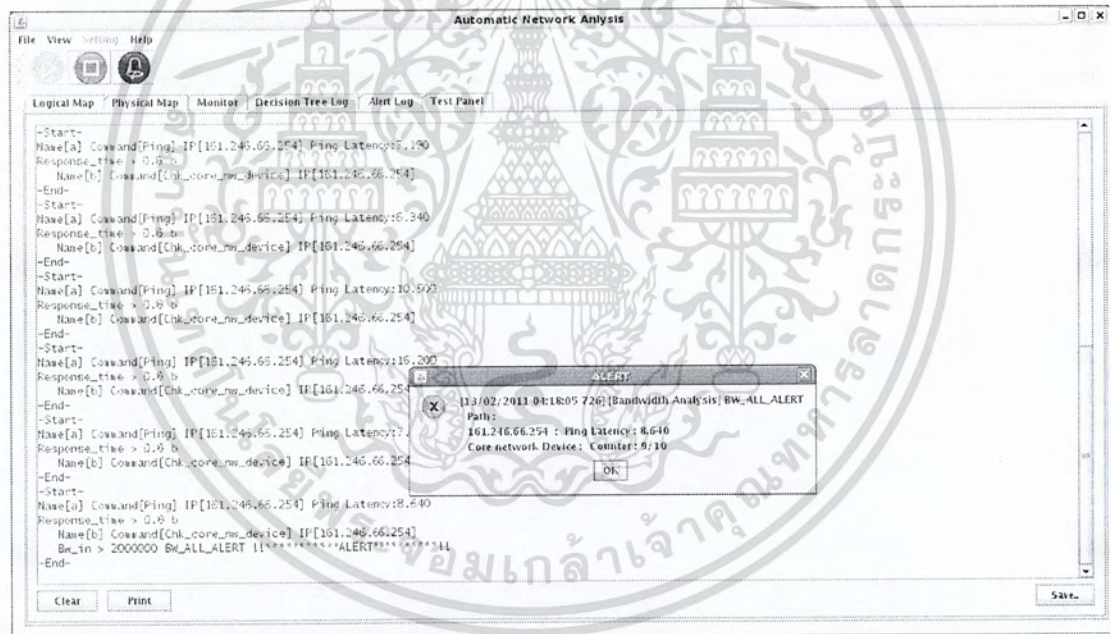 Automatic Network Anlysis
File View Setting Help
Logical Map Physical Map Monitor Decision Tree Log Alert Log Test Panel
-Start-
Name[a] Command[Ping] IP[161.246.66.254] Ping Latency:7.190
Response_time > 0.6 b
Name[b] Command[Chk_core_nw_device] IP[161.246.66.254]
-End-
-Start-
Name[a] Command[Ping] IP[161.246.66.254] Ping Latency:6.340
Response_time > 0.6 b
Name[b] Command[Chk_core_nw_device] IP[161.246.66.254]
-End-
-Start-
Name[a] Command[Ping] IP[161.246.66.254] Ping Latency:10.500
Response_time > 0.6 b
Name[b] Command[Chk_core_nw_device] IP[161.246.66.254]
-End-
-Start-
Name[a] Command[Ping] IP[161.246.66.254] Ping Latency:16.200
Response_time > 0.6 b
Name[b] Command[Chk_core_nw_device] IP[161.246.66.254
-End-
-Start-
Name[a] Command[Ping] IP[161.246.66.254] Ping Latency:7.
Response_time > 0.6 b
Name[b] Command[Chk_core_nw_device] IP[161.246.66.254
-End-
-Start-
Name[a] Command[Ping] IP[161.246.66.254] Ping Latency:8.640
Response_time > 0.6 b
Name[b] Command[Chk_core_nw_device] IP[161.246.66.254]
Bw_in > 2000000 BW_ALL_ALERT
-End-
ALERT
[13/02/2011 04:18:05 726] [Bandwidth Analysis] BW_ALL_ALERT
Path :
161.246.66.254 : Ping Latency : 8.640
Core network Device : Counter : 9/10
OK
Clear Print Save..